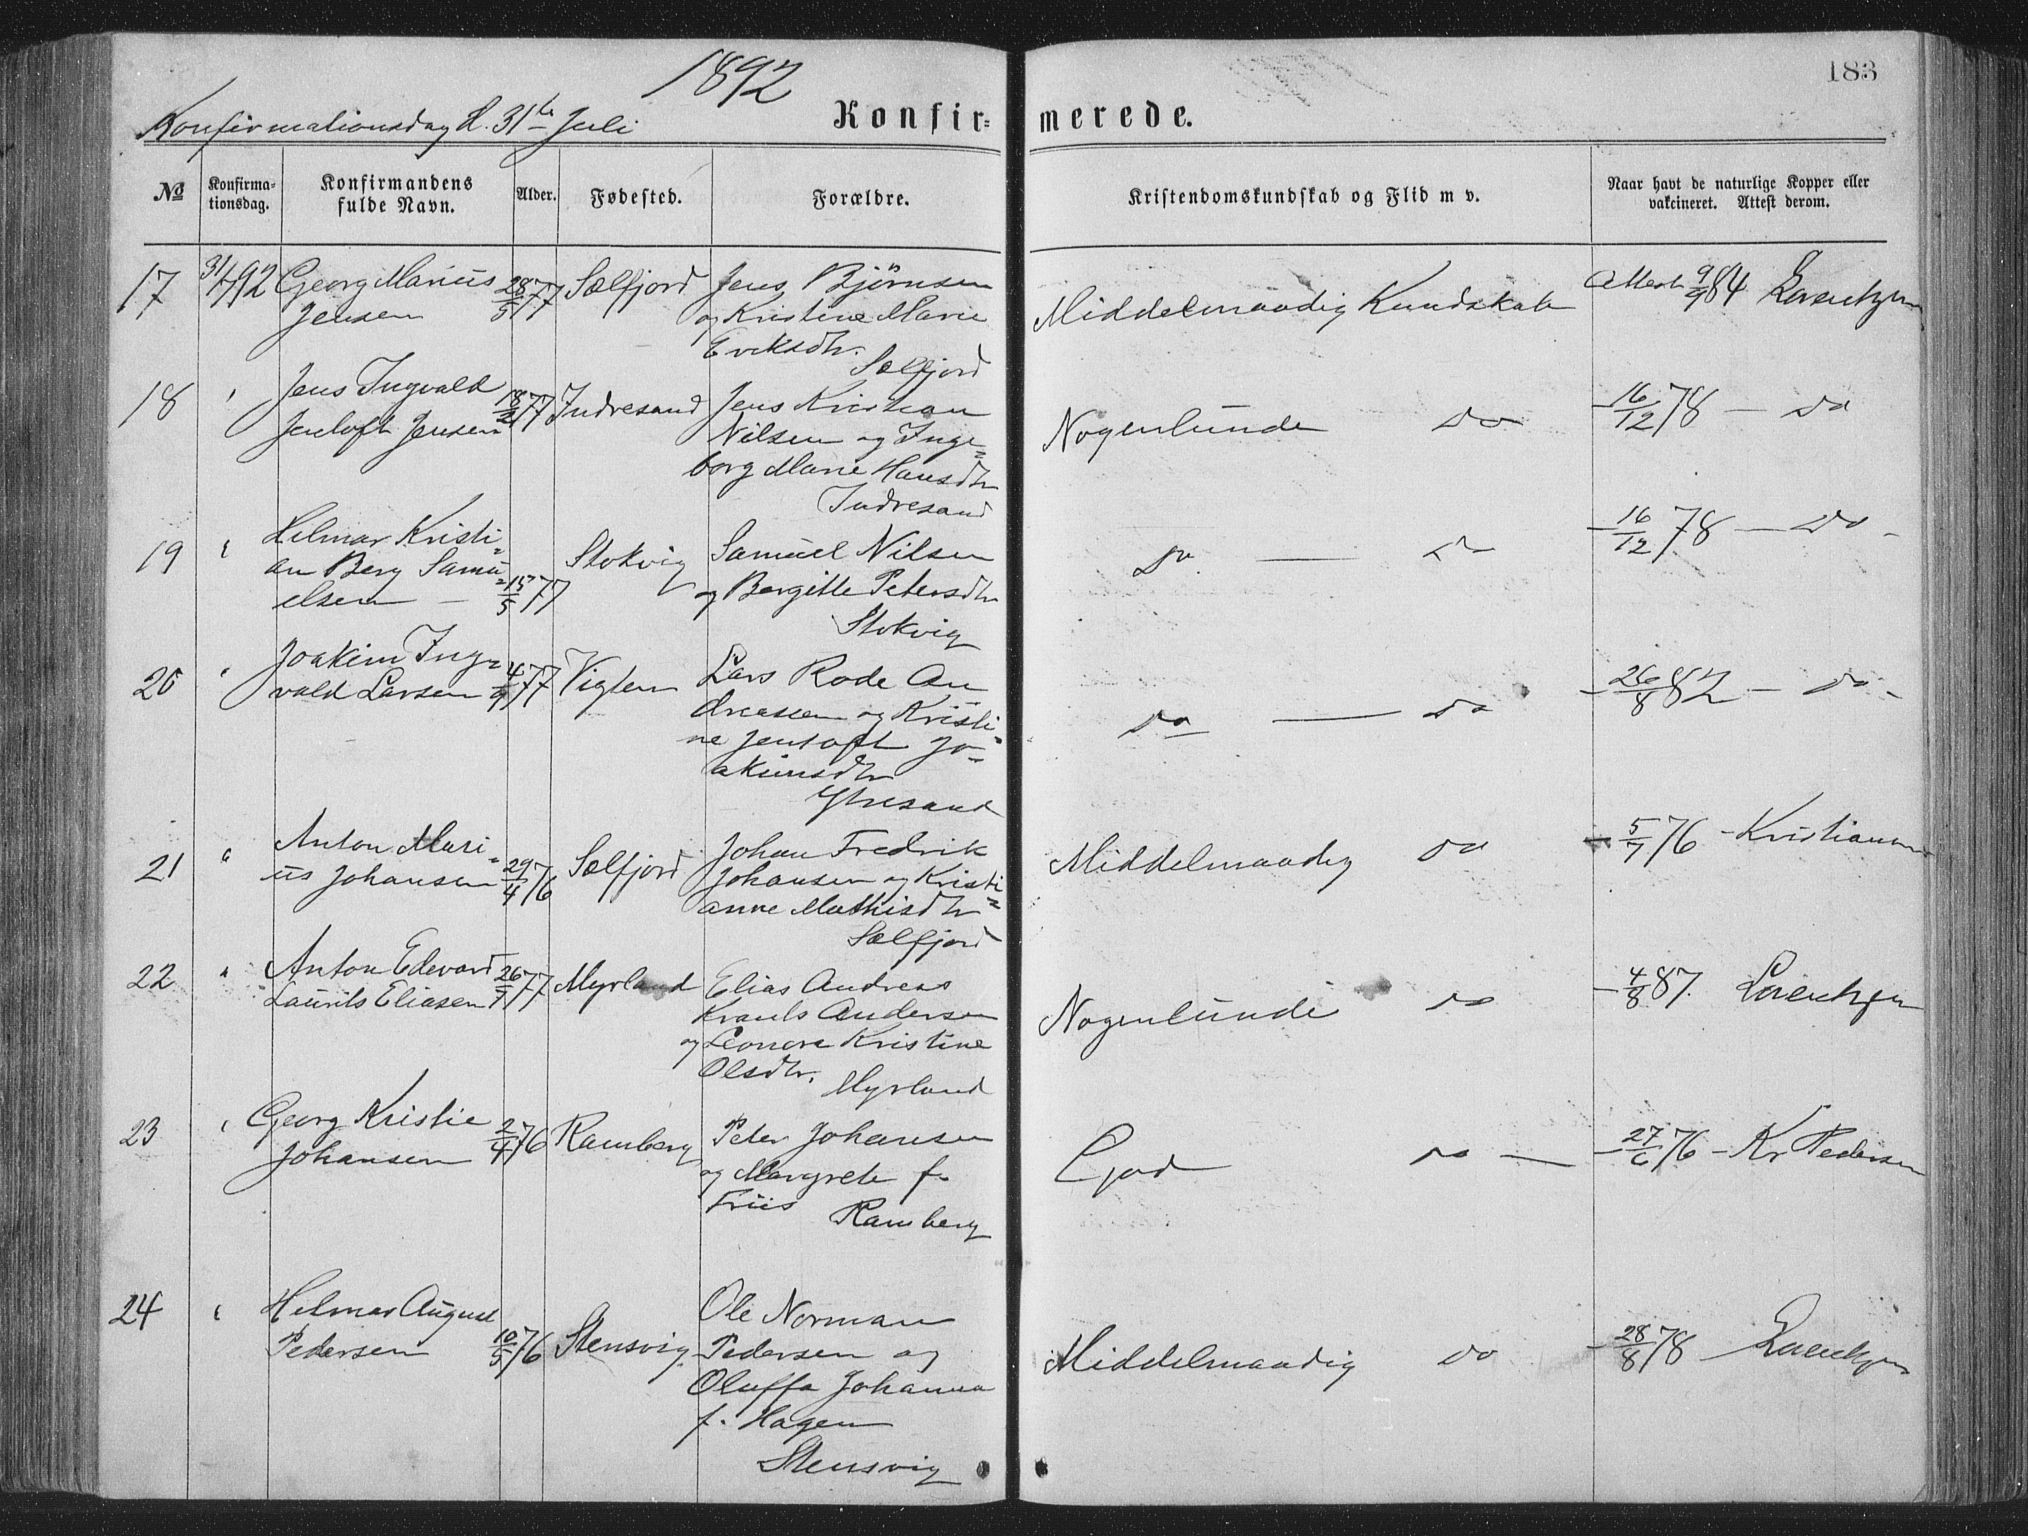 1892
183
Konfirmationsdag d. 31te Juli
Konfir= merede.
No
Konfirma=
tionsdag.
Konfirmandens
fulde Navn.
Alder.
Fødested.
Forældre.
Kristendomskundskab og Flid m v.
Naar havt de naturlige Kopper eller
vakcineret. Attest derom.
17 31/7 92 Georg Marius 28/5 77 Selfjord Jens Björnsen Middelmaadig Kundskab Attest 9/9 84 Lorentzen
Jensen og Kristine Marie
Eriksdtr.
Selfjord
18 " Jens Ingvald 18/2 77 Indresand Jens Kristian Nogenlunde do - 16/12 78 - do
Jentoft Jensen Nilsen og Inge=
borg Marie Hansdtr
Indresand
19 " Hilmar Kristi= Stokvig Samuel Nilsen do — do - 16/12 78 - do -
an Berg Samu= og Bergitte Petersdtr
elsen — 15/5 77
Stokvig
20 " Joakim Ing= 4/9 77 Vigten Lars Rode An do — do - 26/8 82 - do -
vald Larsen dreassen og Kristi=
ne Jentoft Jo=
akimsdtr
Ytresand
21 " Anton Mari= 29/4 76 Selfjord Johan Fredrik Middelmaadig do - 5/7 76 - Kristiansen
us Johansen Johansen og Kristi=
anne Mathisdtr
Selfjord
22 " Anton Edevard 26/7 77 Myrland Elias Andreas Nogenlunde do - 4/8 87. Lorentzen
Laurits Eliasen Krants Andersen
og Leonore Kristine
Olsdtr. Myrland
23 " Georg Kristie 2/4 76 Ramberg Peter Johansen God do — - 27/6 76 - Kr Pedersen
Johansen og Margrete f.
Friis Ramberg
24 " Hilmar August Ole Norman
Pedersen 10/5 76 Stensvig Pedersen og Middelmaadig do - 28/8 78 - Lorentzen
Oluffa Johanna
f. Hagen
Stensvig